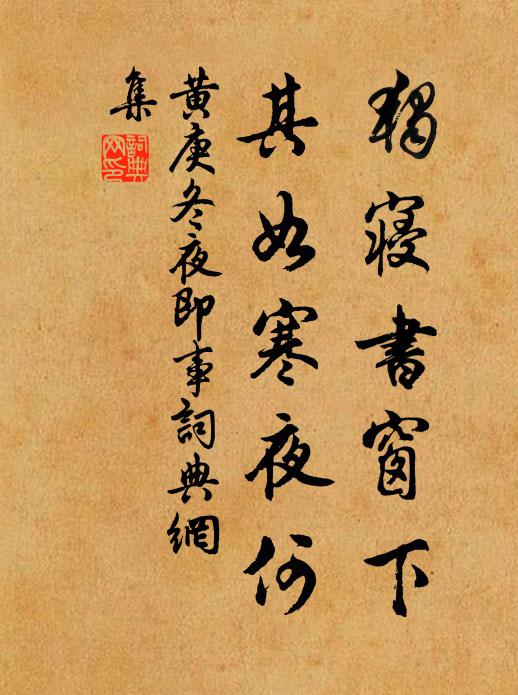 獨寢書窗下
其如寒夜何
黃庚冬夜即事詞典網
集
詞典
网印